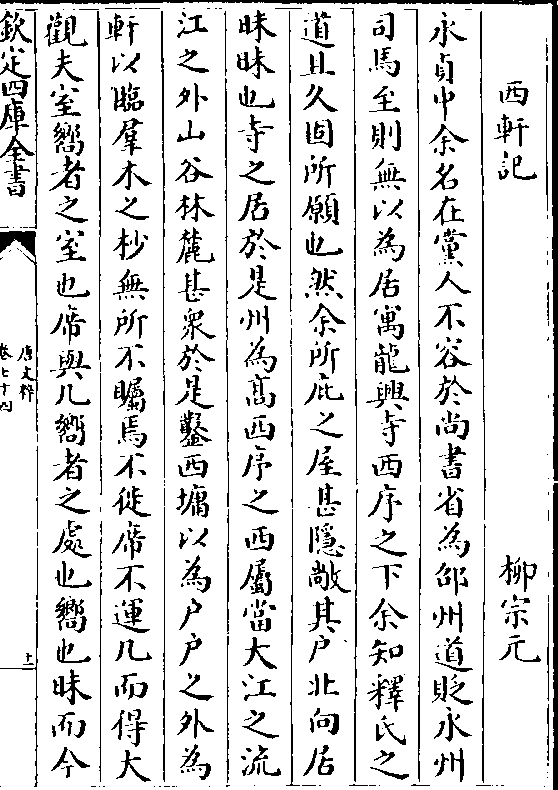 西軒記 柳宗元
永貞中余名在黨人不容於尚書省為邵州道貶永州
司馬至則無以為居寓龍興寺西序之下余知釋氏之
道且久固所願也然余所庇之屋甚隱敞其户北向居
昧昧也寺之居於是州為髙西序之西屬當大江之流
江之外山谷林麓甚衆於是鑿西墉以為户户之外為
軒以臨羣木之杪無所不矚焉不徙席不運几而得大
觀夫室嚮者之室也席與几嚮者之處也嚮也昧而今
欽定四庫全書
唐文粹
卷七十四
十一